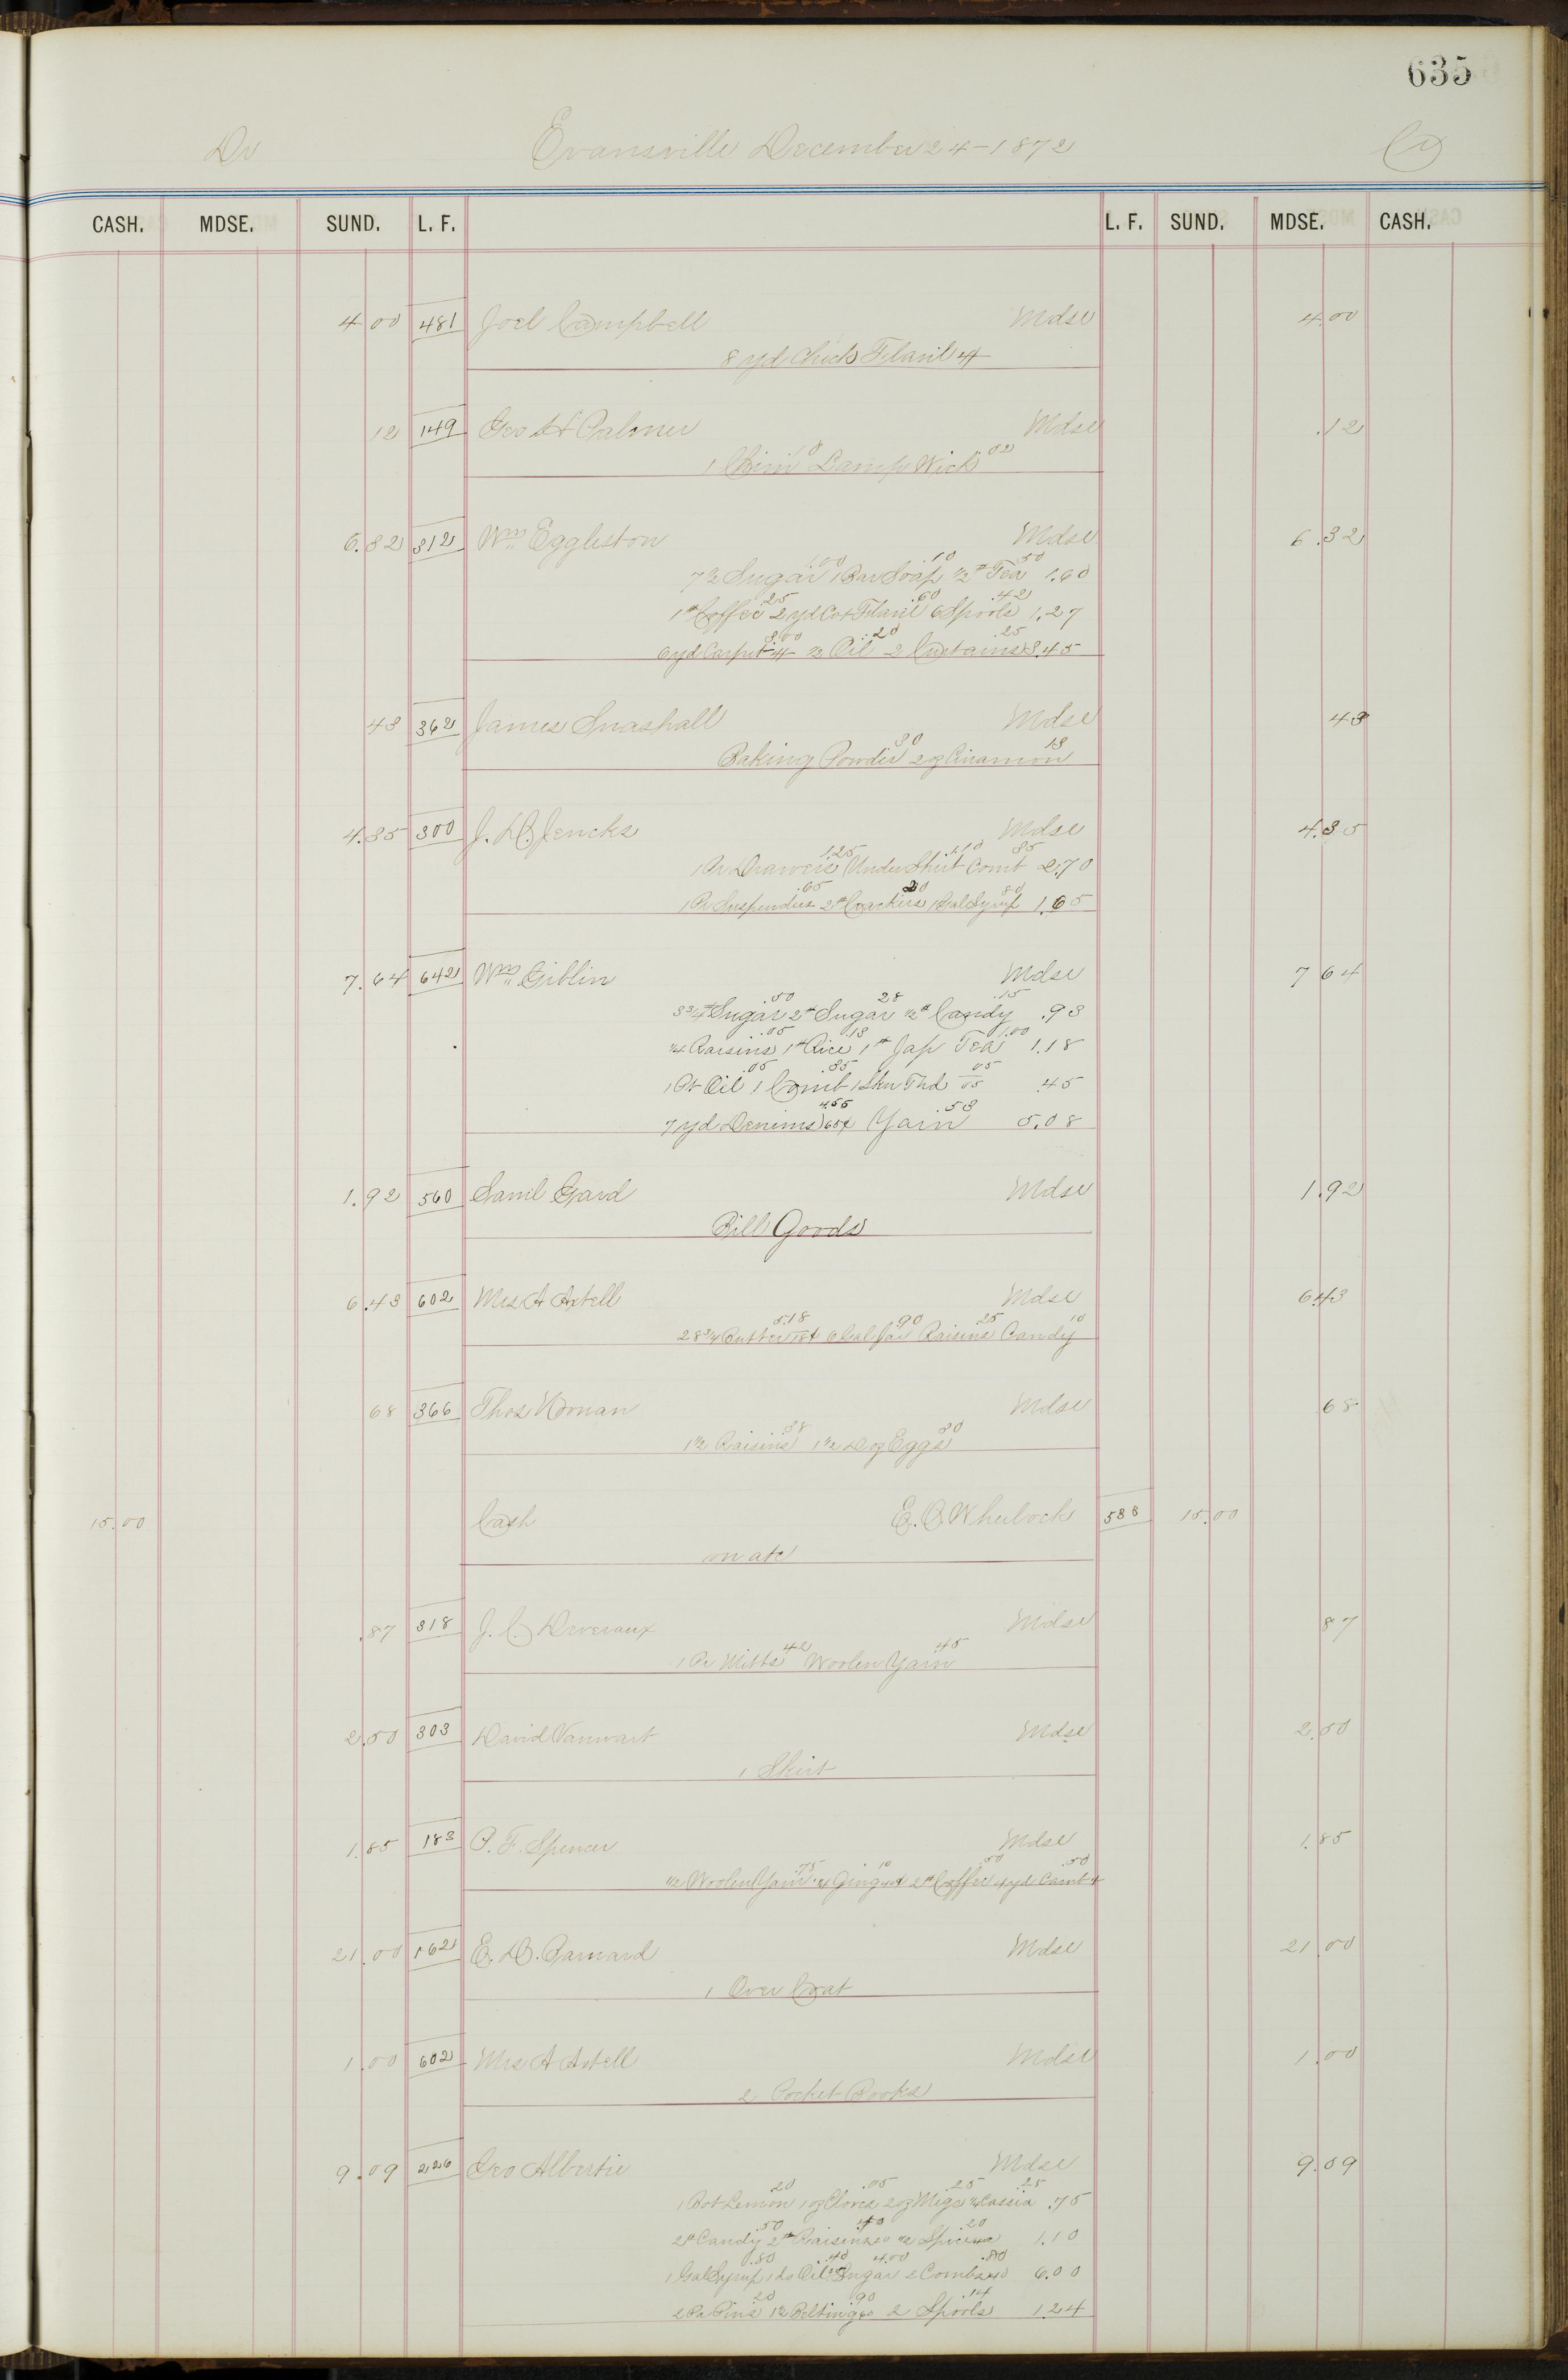 635
Dr Evansville December 24-1872 Cr
CASH. MDSE. SUND. L. F. L. F. SUND. MDSE. CASH.
4 00 481 Joel Campbell Mdse 4.00
8 yd Check Flanil 4/
12 149 Geo H Palmer Mdse .12
1 Chim 10 Lamp Wick 02
6.32 312 Wm Eggleston Mdse 6.32
1.00 .10 .50
7½ Sugar 1 Bar Soap ½# Tea 1.60
.25 .60 .42
1# Coffee 2 yd Cot Flanil 6 Spools 1.27
3.00 .20 .25
6 yd Carpet 4/ ½ Oil 2 Curtains 3.45
43 362 James Snashall Mdse 43
30 13
Baking Powder 2 oz Cinamon
4.35 300 J. D. Jencks Mdse 4.35
1.25 1.10 35
1 Pr Drawers 1 Under Shirt Comb 2.70
.65 20 80
1 Pr Suspenders 2# Crackers 1 Gal Syrup 1.65
7.64 642 Wm Giblin Mdse 7 64
.50 28 .15
3¾# Sugar 2# Sugar ½# Candy .93
.05 .13 1.00
¼ Raisins 1# Rice 1# Jap Tea 1.18
.05 .35 05
1 Pt Oil 1 Comb 1 Skn Thd 05 .45
4.55 .53
7 yd Denims 65¢ Yarn 5.08
1.92 560 Saml Gard Mdse 1.92
Bill Goods
6.43 602 Mrs A Axtell Mdse 6.43
5.18 .90 .25 10
28¾ Butter 18¢ 6 Gal Jar Raisins Candy
68 366 Thos Noonan Mdse 68
.38 30
1½ Raisins 1½ Doz Eggs
15.00 Cash E. C. Wheelock 588 15.00
on a/c
.87 318 J. C. Deveraux Mdse 87
42 .45
1 Pr Mitts Woolen Yarn
2.50 303 David Vanwart Mdse 2.50
1 Skirt
1.85 183 P. F. Spencer Mdse 1.85
.75 10 .50 .50
½ Woolen Yarn ¼ Ging 40¢ 2# Coffee 4 yd Camb
21.00 162 E. D. Barnard Mdse 21.00
1 Over Coat
1.00 602 Mrs A Axtell Mdse 1.00
2 Pocket Books
9.09 226 Geo Albertie Mdse 9.09
.20 .05 .25 .25
1 Bot Lemon 1 oz Cloves 2 oz Megs ¼ Cassia .75
.50 .40 .20
2# Candy 2# Raisins 20 ½ Spice 40 1.10
.80 .40 4.00 .80
1 Gal Syrup 1 do Oil Sugar 2 Combs 40 6.00
20 90 .14
2 Pa Pins 1½ Belting 60 2 Spools 1.24